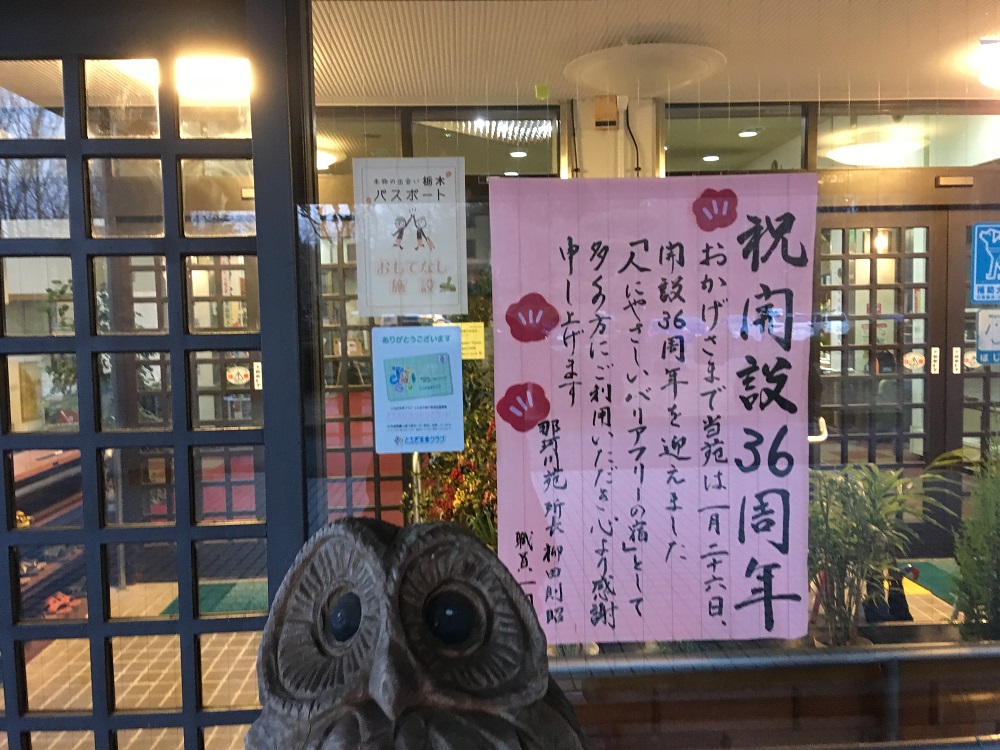 祝開設36周年
おかげさまで当苑は一月二十六日、
開設36周年を迎えました
「人にやさしいバリアフリーの宿」として
多くの方にご利用いただき心より感謝
申し上げます
那珂川苑 所長 柳田則昭
職員一同
本物の出会い 栃木
パスポート
おもてなし
施設
ありがとうございます
とちぎ笑顔クラブ
補助犬